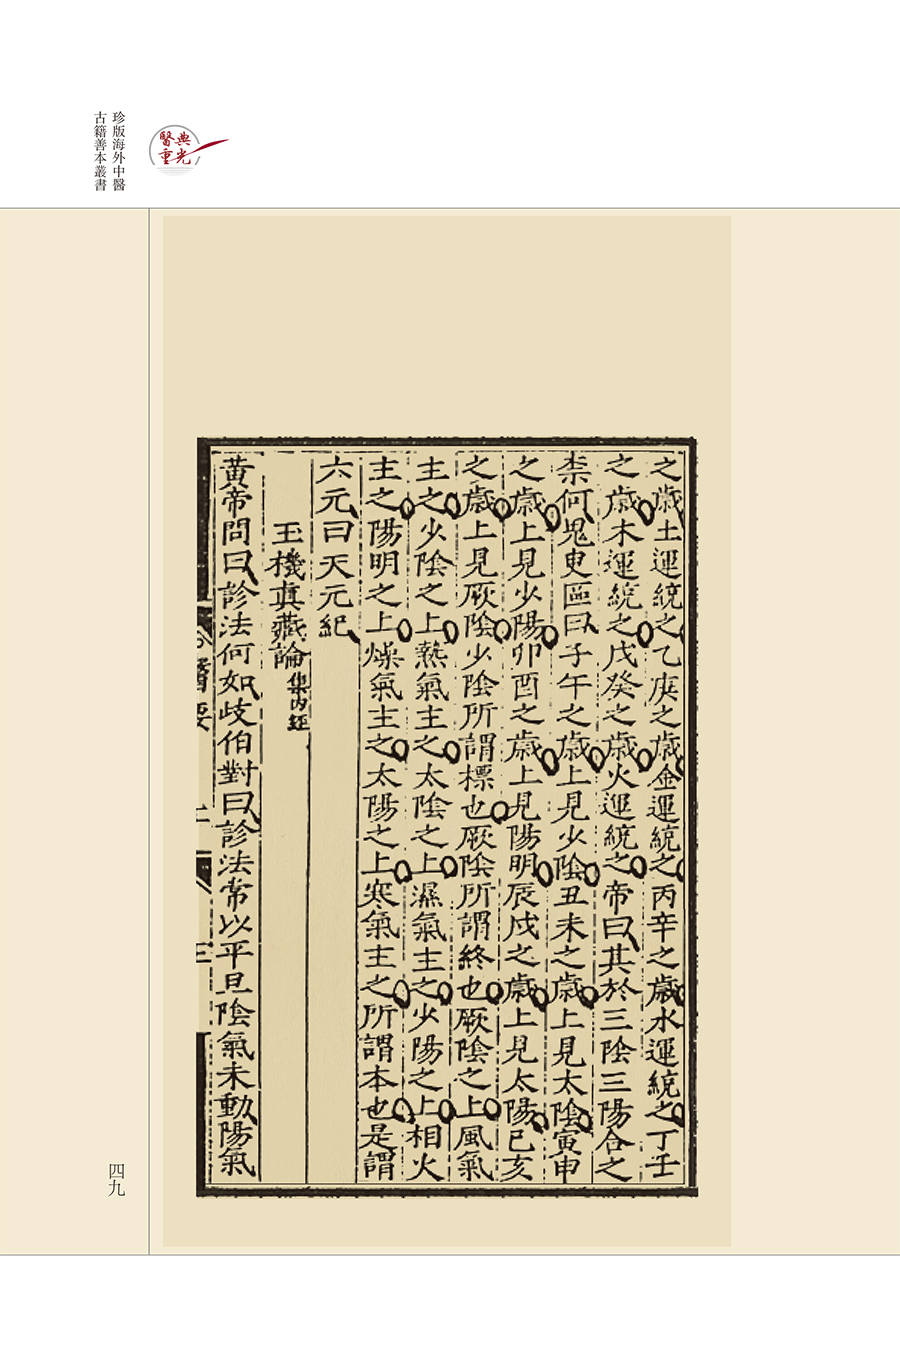 珍版海外中醫
古籍善本叢書
醫典
重光
之歲土運統之乙庚之歲金運統之丙辛之歲水運統之丁壬
之歲木運統之戊癸之歲火運統之帝曰其於三陰三陽合之
柰何鬼臾區曰子午之歲上見少陰丑未之歲上見太陰寅申
之歲上見少陽卯酉之歲上見陽明辰戌之歲上見太陽巳亥
之歲上見厥陰少陰所謂標也厥陰所謂終也厥陰之上風氣
主之少陰之上熱氣主之太陰之上濕氣主之少陽之上相火
主之陽明之上燥氣主之太陽之上寒氣主之所謂本也是謂
六元曰天元紀
玉機真藏論集内經
黃帝問曰診法何如歧伯對曰診法常以平旦陰氣未動陽氣
四九